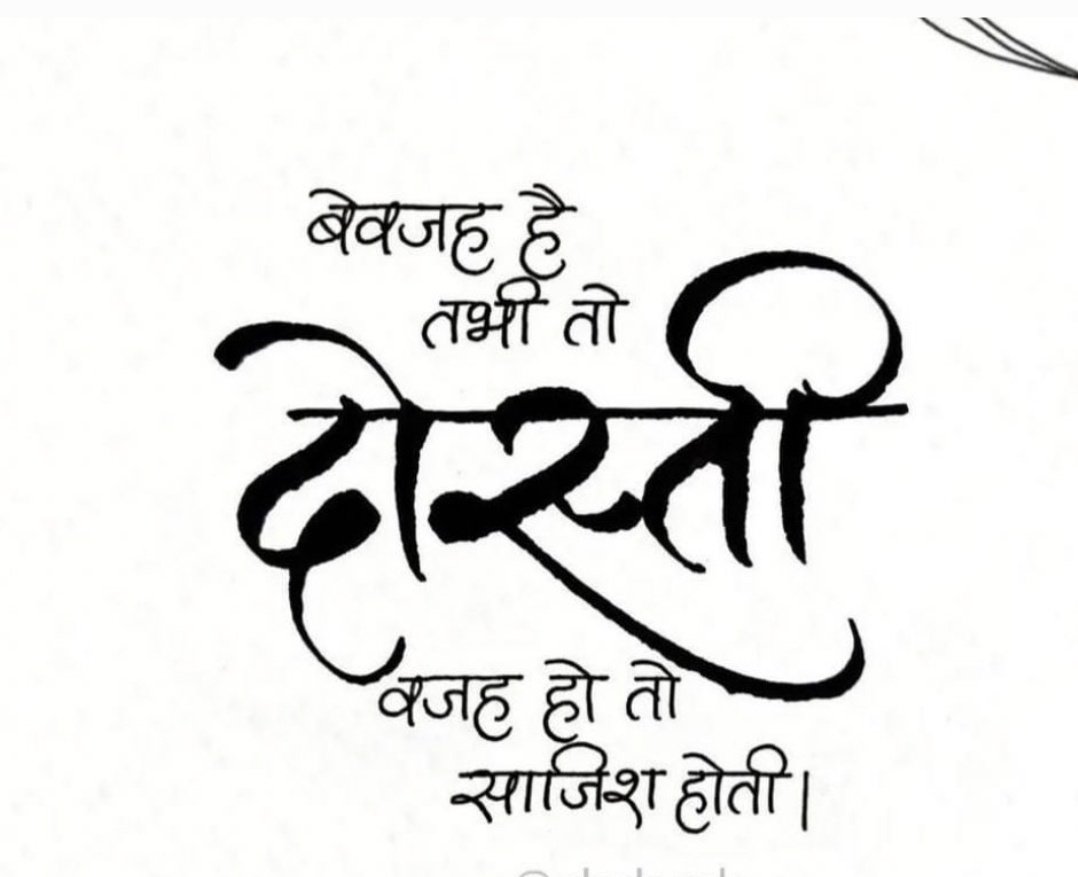 बेवजह है
तभी तो
दोस्ती
वजह हो तो
साजिश होती।